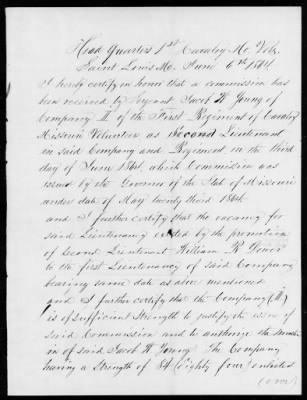 Head Quarters 1st Cavalry Mo. Vols.
Saint Louis Mo. June 6th 1864
I hereby certify on honor that a commission has
been received by Sergeant Jacob W Young of
Company M of the First Regiment of Cavalry
Missouri Volunteers as Second Lieutenant
in said Company and Regiment on the third
day of June 1864, which Commission was
issued by the Governor of the State of Missouri
under date of May twenty third 1864
and I further certify that the vacancy for
said Lieutenancy by the promotion
of Second Lieutenant William R
to the first Lieutenancy of said Company
bearing same date as above mentioned
and I further certify that the Company (M)
is of sufficient Strength to justify the issue of
said Commission and to authorize the muster
in of said Jacob W Young. The Company
having a Strength of 84 (Eighty four) enlisted
(over)